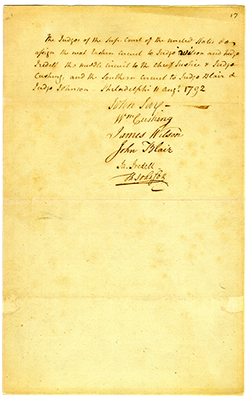 17
The Judges of the Supr. Court of the united States
assign the next Eastern Circuit to Judge Wilson and Judge
Iredell the middle Circuit to the chief Justice & Judge
Cushing, and the Southern Circuit to Judge Blair &
Judge Johnson. Philadelphia 11 Augt. 1792
John Jay
Wm Cushing
James Wilson
John Blair
Ja. Iredell
Th Johnson